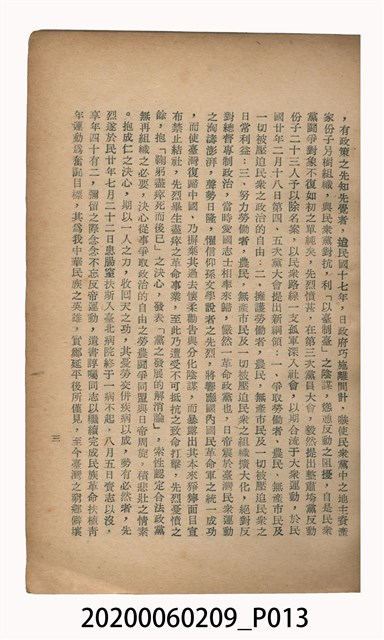 ，有政策之先知先覺者，迨民國十七年，日政府巧施離間計，嗾使民衆黨中之地主資產
家份子另樹組織，與民衆黨對抗，利「以臺制臺」之陰謀，慫恿反動之阻擾，自是民衆
黨鬪爭對象不復如初之單純矣，先烈憤甚，在第三次黨員大會，毅然提出整肅塲黨反動
份子二十三人予以除名案，以民衆路線一支孤軍深入社會，以期合流于大衆運動，於民
國廿年二月十八日第四、五次黨大會提出新綱領：一、爭取勞働者、農民、無產市民及
一切被壓迫民衆之政治的自由；二、擁護勞働者，農民，無產市民及一切被壓迫民衆之
日常利益；三、努力勞働者、農民，無產市民及一切被壓迫民衆之組織擴大化，絕對反
對總督專制政治，當時愛國志士相率來歸，儼然一革命政黨也，日帝震於臺灣民衆運動
之洶濤澎湃，聲勢日隆，懼信仰孫文學說者之先烈，將響應國內國民革命軍之統一成功
，而使臺灣復歸中國，乃摒棄其過去懷柔勸告與分化陰謀，而暴露出其本來猙獰面目宣
布禁止結社，先烈畢生盡瘁之革命事業，至此乃遭受不可抵抗之致命打擊，先烈憂憤之
餘，抱「鞠躬盡瘁死而後已」之決心，發表「黨之發展的解消論」，索性認定合法政黨
無再組織之必要，決心從事爭取政治的自由之勞農鬪爭同盟與日帝周旋，積悲壯之情素
。抱成仁之決心，期以一人之力，收回天之功，其憂勞交併疾病以成，勢有必然者，先
烈遂於民廿年七月二十二日患膓窒扶斯入臺北病院終于一病不起。八月五日賫志以沒，
享年四十有二，彌留之際念念不忘反帝運動，遺書諄囑同志以繼續完成民族革命扶植青
年運動爲奮鬪目標，其爲我中華民族之英雄，實鄭延平後所僅見，至今臺灣之窮鄉僻壤
三
20200060209_P013